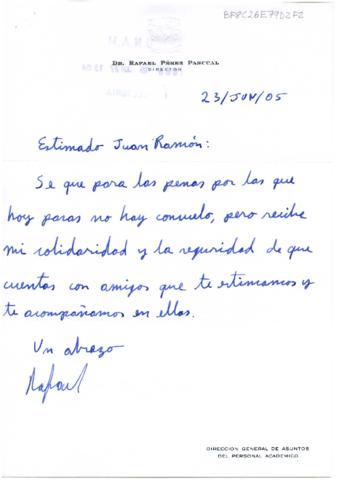 BF8C26E79D2F2
UNAM
DR. RAFAEL PÉREZ PASCUAL
DIRECTOR
23/JUN/05
Estimado Juan Ramón:
Se que para las penas por las que
hoy pasas no hay consuelo, pero recibe
mi solidaridad y la seguridad de que
cuentas con amigos que te estimamos y
te acompañamos en ellas.
Un abrazo
Rafael
DIRECCION GENERAL DE ASUNTOS
DEL PERSONAL ACADEMICO